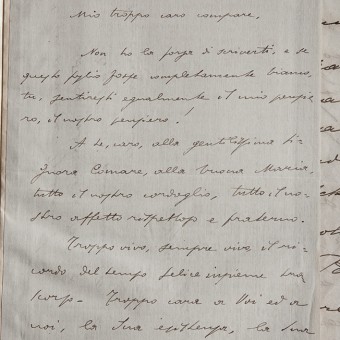 Mio troppo caro compare,
Non ho la forza di scriverti, e se
questo foglio fosse completamente bianco,
tu, sentiresti egualmente il mio pensie
ro, il nostro pensiero!
A te, caro, alla gentilissima Si
gnora Comare, alla buona Maria,
tutto il nostro cordoglio, tutto il no
stro affetto rispettoso e fraterno.
Troppo vivo, sempre vivo il ri
cordo del tempo felice insieme tra
scorso. Troppo cara a Voi ed a
noi, la Sua esistenza, la Sua